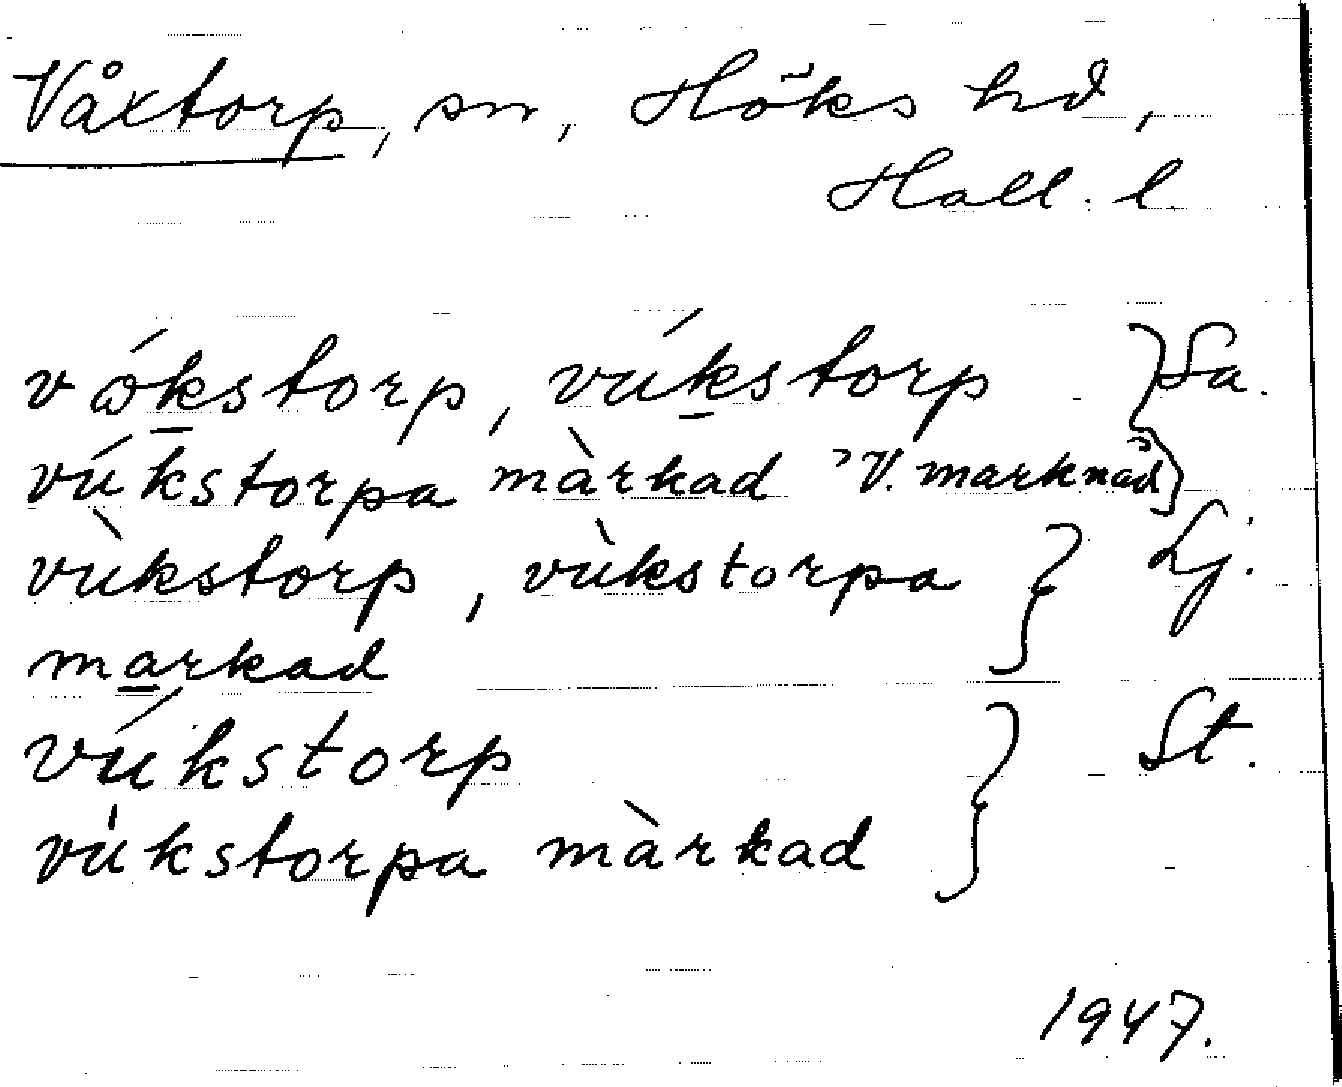 Våxtorp, sn, Höks hd,
Hall. l.
vó̀kstorp, vúkstorp } Sa.
vúkstorpa màrkad 'V. marknad' }
vùkstorp, vùkstorpa } Lj.
markad
vúkstorp } St.
vúkstorpa màrkad
1947.